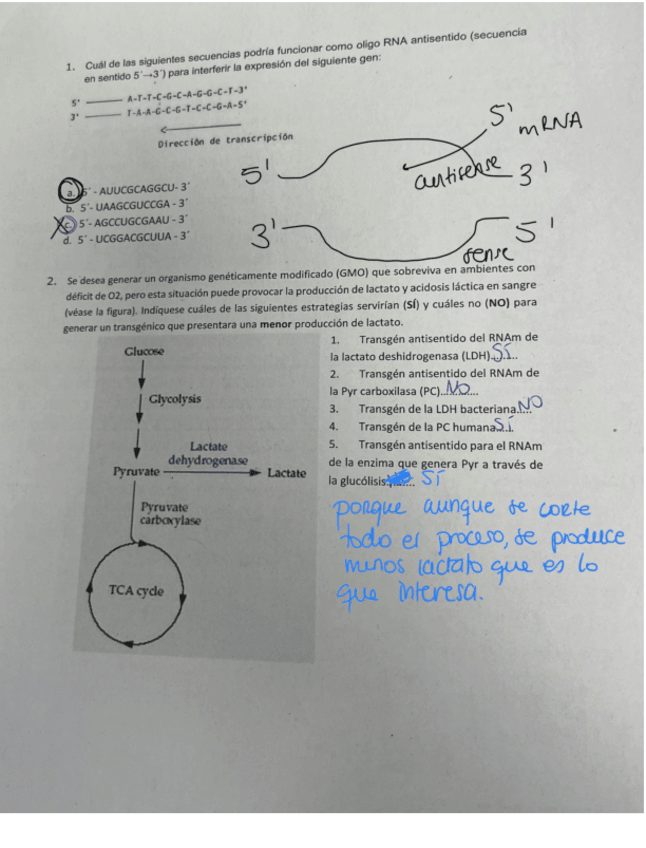 1. Cuál de las siguientes secuencias podría funcionar como oligo RNA antisentido (secuencia
en sentido 5´→3´) para interferir la expresión del siguiente gen:
5' ——— A-T-T-C-G-C-A-G-G-C-T-3'
3' ——— T-A-A-G-C-G-T-C-C-G-A-5'
Dirección de transcripción
5'
mRNA
5'
antisense
3'
a. 5´- AUUCGCAGGCU- 3´
b. 5´- UAAGCGUCCGA - 3´
c. 5´- AGCCUGCGAAU - 3´
d. 5´- UCGGACGCUUA - 3´
3'
5'
sense
2. Se desea generar un organismo genéticamente modificado (GMO) que sobreviva en ambientes con
déficit de O2, pero esta situación puede provocar la producción de lactato y acidosis láctica en sangre
(véase la figura). Indíquese cuáles de las siguientes estrategias servirían (SÍ) y cuáles no (NO) para
generar un transgénico que presentara una menor producción de lactato.
Glucose
Glycolysis
Lactate
dehydrogenase
Pyruvate
Lactate
Pyruvate
carboxylase
TCA cycle
1. Transgén antisentido del RNAm de
la lactato deshidrogenasa (LDH)..SÍ...
2. Transgén antisentido del RNAm de
la Pyr carboxilasa (PC)..NO....
3. Transgén de la LDH bacteriana....NO
4. Transgén de la PC humana..SÍ..
5. Transgén antisentido para el RNAm
de la enzima que genera Pyr a través de
la glucólisis...... SÍ
porque aunque se corte
todo el proceso, se produce
menos lactato que es lo
que interesa.